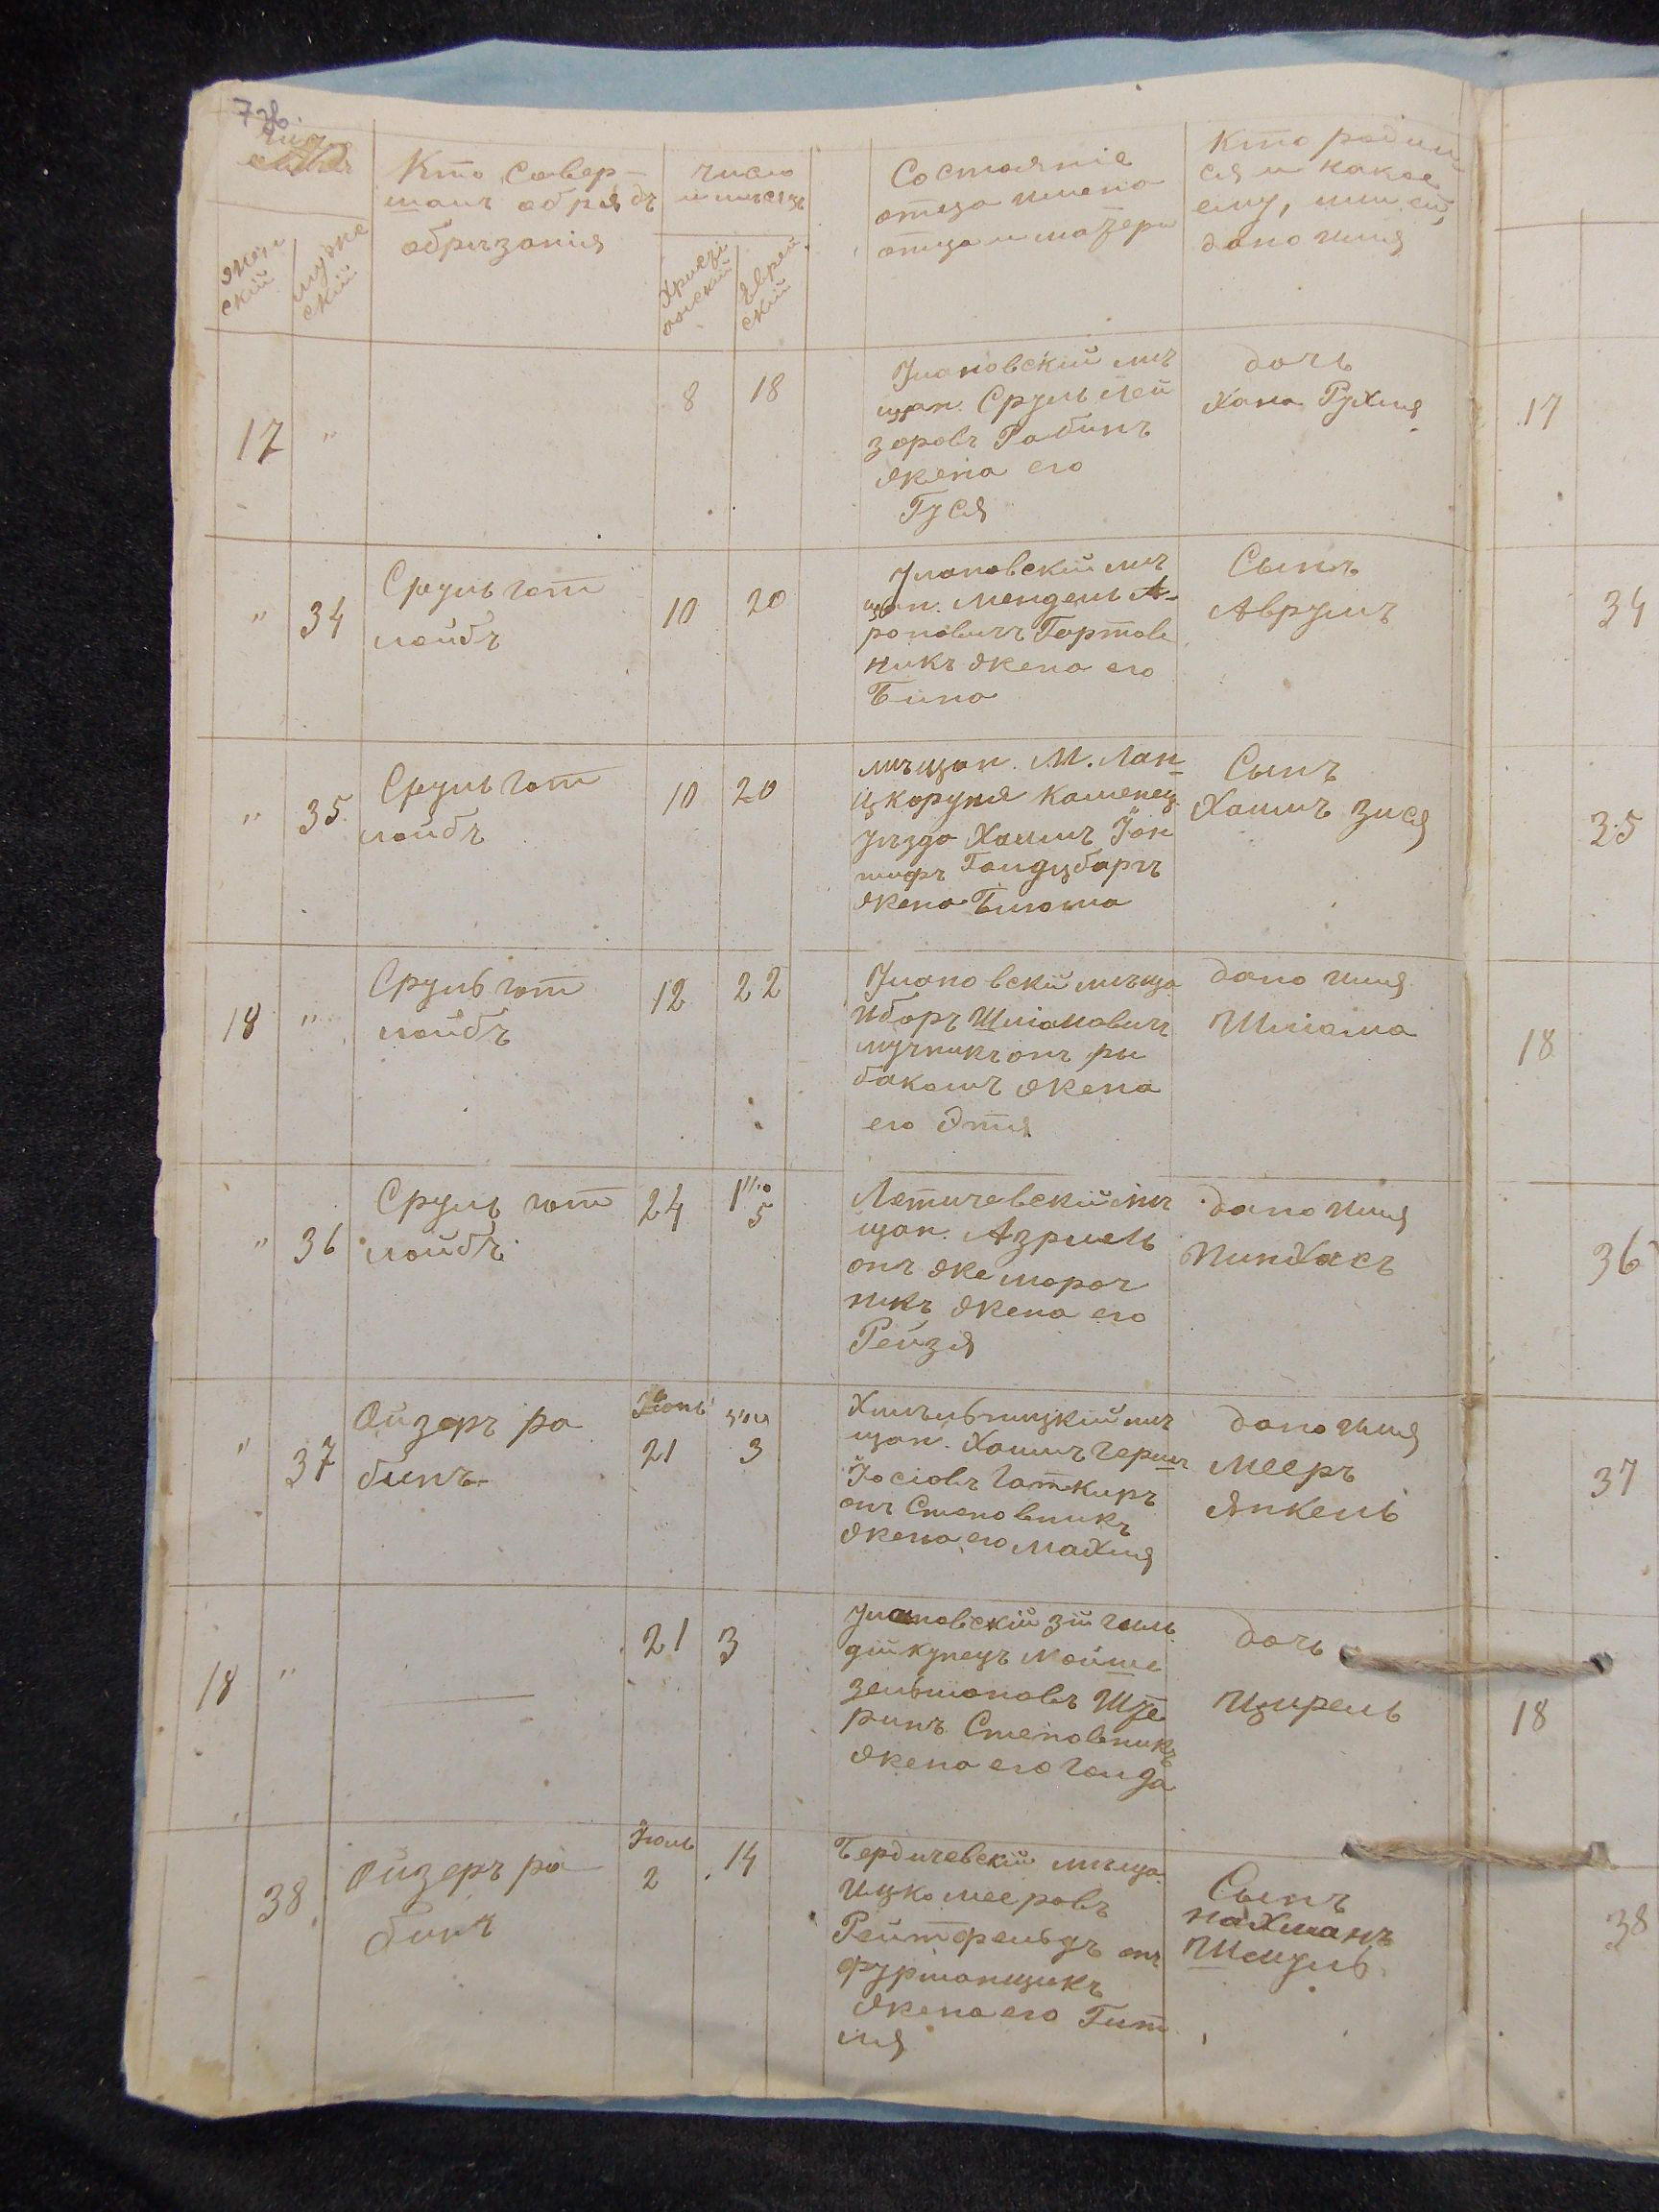 Кто совер-
шалъ обрядъ
обрѣзанія
число
и мѣсяцъ
Состояніе
отца имена
отца и матери
Кто родил
ся и какое
ему, или ей,
дано имя
жен
скій
муже
скій
Христі
анскій
Еврей
скій
17
"
8
18
Улановскій мѣ
щан. Сруль Лей
зоровъ Рабинъ
жена его
Гуся
дочь
Хана Рухля
17
"
34
Сруль гот
лойбъ
10
20
Улановскій мѣ
щан. Мендель А-
роновичъ Гортов
никъ жена его
Бина
Сынъ
Аврумъ
34
"
35
Сруль гот
лойбъ
10
20
мѣщан. М. Лан-
цкоруня Каменец.
уѣзда Хаимъ
Голдцбаргъ
жена Блюма
Сынъ
Хаимъ Зися
35
18
"
Сруль гот
лойбъ
12
22
Улановскій мѣща
Шліомовичъ
мучникъ онъ ры
бакомъ жена
его Этя
дано имя
Шліома
18
"
36
Сруль гот
лойбъ
24
5
Летичевскій мѣ
щан. Азриель
онъ же мороч
никъ жена его
Рейзя
дано имя
Пинхасъ
36
"
37
Ойзеръ ра
бинъ
Іюнь
21
3
Хмѣльницкій мѣ
щан. Хаимъ Герш
Іосіовъ Готкиръ
онъ Становникъ
жена его Махля
дано имя
Мееръ
Янкель
37
18
"
21
3
Улановскій 3й гиль
дій купецъ Мойше
Зельмановъ
ринъ Становникъ
жена его Голда
дочь
Цирель
18
38
Ойзеръ ра
бинъ
Іюль
2
14
Бердичевскій мѣща
Ицко Мееровъ
Рейтфельдъ онъ
фурманщикъ
жена его Гит
ля
Сынъ
Нахманъ
Шмуль
38